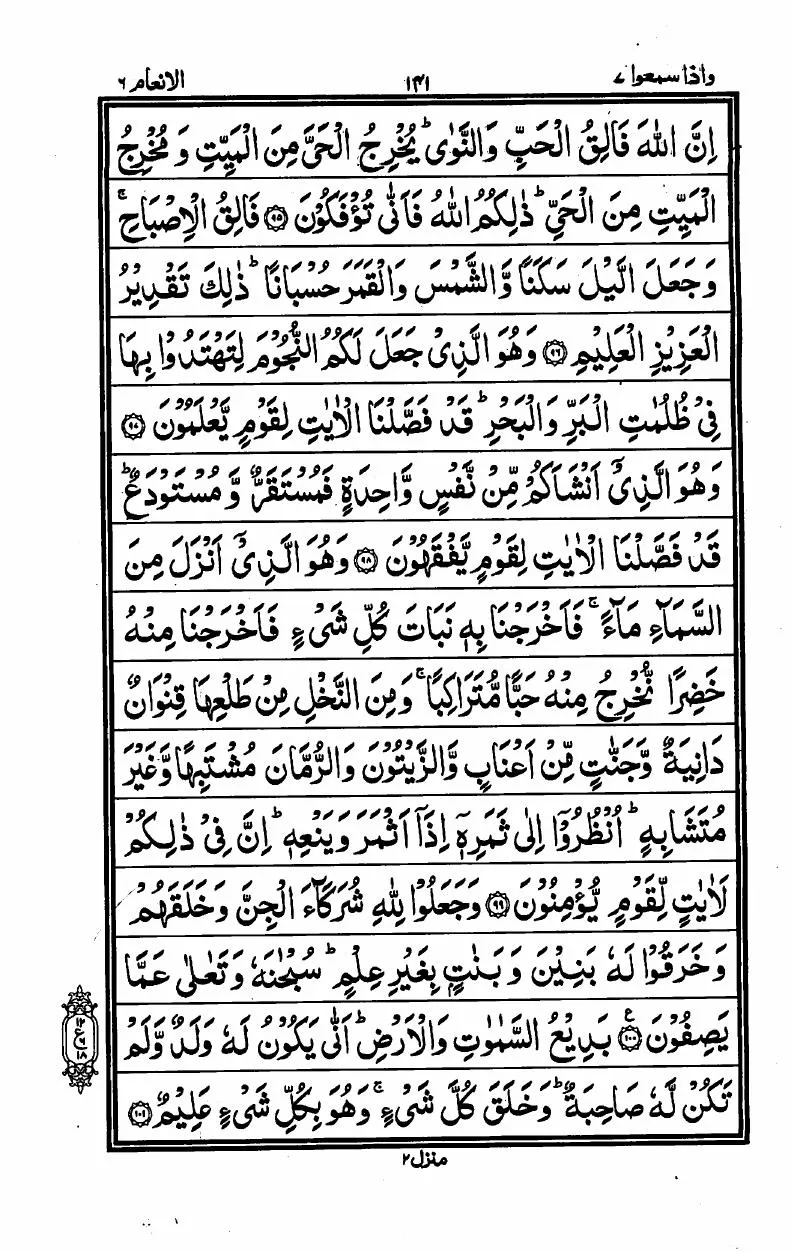 واذا سمعوا ۷ ۱۴۱ الانعام ۶
اِنَّ اللّٰهَ فَالِقُ الْحَبِّ وَالنَّوٰی ؕ یُخْرِجُ الْحَیَّ مِنَ الْمَیِّتِ وَ مُخْرِجُ
الْمَیِّتِ مِنَ الْحَیِّ ؕ ذٰلِكُمُ اللّٰهُ فَاَنّٰی تُؤْفَكُوْنَ ﴿۹۵﴾ فَالِقُ الْاِصْبَاحِ ۚ
وَ جَعَلَ الَّیْلَ سَكَنًا وَّالشَّمْسَ وَالْقَمَرَ حُسْبَانًا ؕ ذٰلِكَ تَقْدِیْرُ
الْعَزِیْزِ الْعَلِیْمِ ﴿۹۶﴾ وَهُوَ الَّذِیْ جَعَلَ لَكُمُ النُّجُوْمَ لِتَهْتَدُوْا بِهَا
فِیْ ظُلُمٰتِ الْبَرِّ وَالْبَحْرِ ؕ قَدْ فَصَّلْنَا الْاٰیٰتِ لِقَوْمٍ یَّعْلَمُوْنَ ﴿۹۷﴾
وَهُوَ الَّذِیْۤ اَنْشَاَكُمْ مِّنْ نَّفْسٍ وَّاحِدَةٍ فَمُسْتَقَرٌّ وَّ مُسْتَوْدَعٌ ؕ
قَدْ فَصَّلْنَا الْاٰیٰتِ لِقَوْمٍ یَّفْقَهُوْنَ ﴿۹۸﴾ وَهُوَ الَّذِیْۤ اَنْزَلَ مِنَ
السَّمَآءِ مَآءً ۚ فَاَخْرَجْنَا بِهٖ نَبَاتَ كُلِّ شَیْءٍ فَاَخْرَجْنَا مِنْهُ
خَضِرًا نُّخْرِجُ مِنْهُ حَبًّا مُّتَرَاكِبًا ۚ وَمِنَ النَّخْلِ مِنْ طَلْعِهَا قِنْوَانٌ
دَانِیَةٌ وَّجَنّٰتٍ مِّنْ اَعْنَابٍ وَّالزَّیْتُوْنَ وَالرُّمَّانَ مُشْتَبِهًا وَّغَیْرَ
مُتَشَابِهٍ ؕ اُنْظُرُوْۤا اِلٰی ثَمَرِهٖۤ اِذَاۤ اَثْمَرَ وَیَنْعِهٖ ؕ اِنَّ فِیْ ذٰلِكُمْ
لَاٰیٰتٍ لِّقَوْمٍ یُّؤْمِنُوْنَ ﴿۹۹﴾ وَجَعَلُوْا لِلّٰهِ شُرَكَآءَ الْجِنَّ وَخَلَقَهُمْ
وَخَرَقُوْا لَهٗ بَنِیْنَ وَ بَنٰتٍۭ بِغَیْرِ عِلْمٍ ؕ سُبْحٰنَهٗ وَتَعٰلٰی عَمَّا
یَصِفُوْنَ ﴿۱۰۰﴾ ع بَدِیْعُ السَّمٰوٰتِ وَالْاَرْضِ ؕ اَنّٰی یَكُوْنُ لَهٗ وَلَدٌ وَّلَمْ
تَكُنْ لَّهٗ صَاحِبَةٌ ؕ وَخَلَقَ كُلَّ شَیْءٍ ۚ وَهُوَ بِكُلِّ شَیْءٍ عَلِیْمٌ ﴿۱۰۱﴾
۱۲
ع
۱۸
منزل ۲